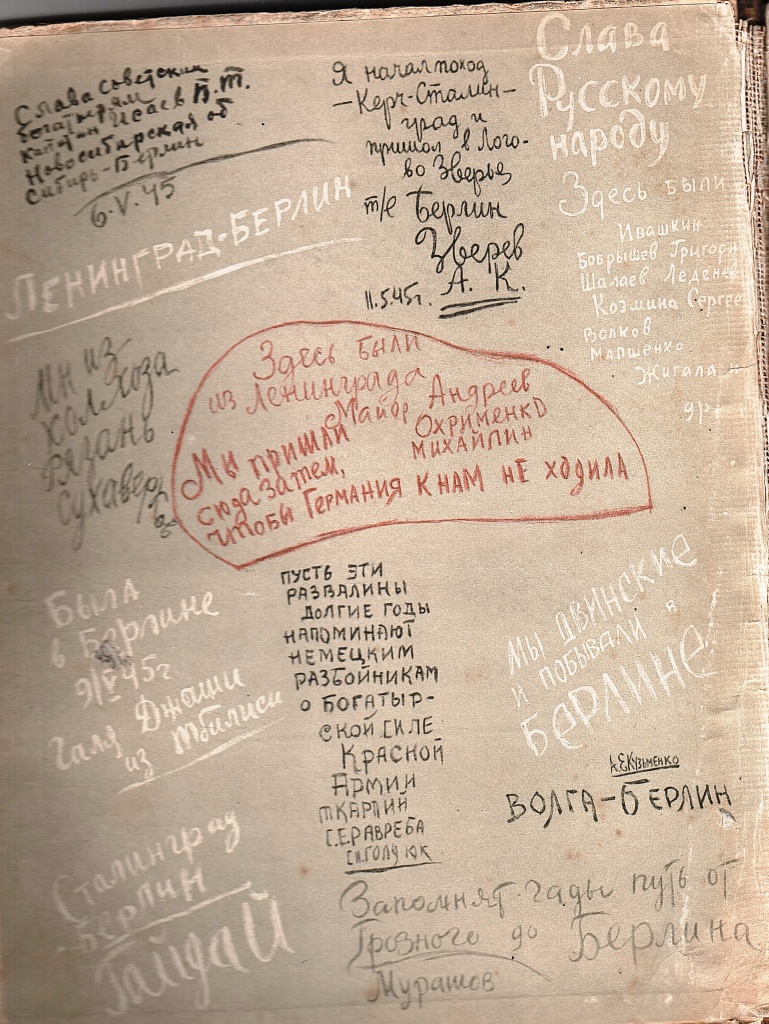 Слава советским
богатырям
капитан Исаев П.Т.
Новосибирская об
Сибирь-Берлин
6.V.45
Я начал поход
-Керч-Сталин-
град и
пришол в Лого-
во Зверьез
т/е Берлин
Зверев
А. К.
11.5.45г.
Слава
Русскому
народу
Здесь были
Ивашкин
Бобрышев Григорь
Шалаев Леденев
Козмина Сергее
Волков
Мапшенко
Жигалан
др.
Ленинград-Берлин
Мы из
колхоза
Рязань
Сухавер
Здесь были
из Ленинграда
Майор Андреев
Охрименко
Михайлин
Мы пришли
сюда затем,
чтобы Германия к нам не ходила
Была
в Берлине
9/V 45г
Галя Джаши
из Тбилиси
Пусть эти
развалины
долгие годы
напоминают
немецким
разбойникам
о богатыр-
ской силе
Красной
Армии
Т.Карпин
С.Е.Равреба
Си.Голуюк
Мы двинские
и побывали в
Берлине!
А.Е.Кузьменко
Волга-Берлин
Сталинград
-Берлин
Гайдай
Запомнят гады путь от
Грозного до Берлина
Мурашов